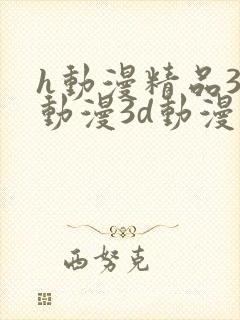 h動漫精品3
動漫3d動漫
西努克